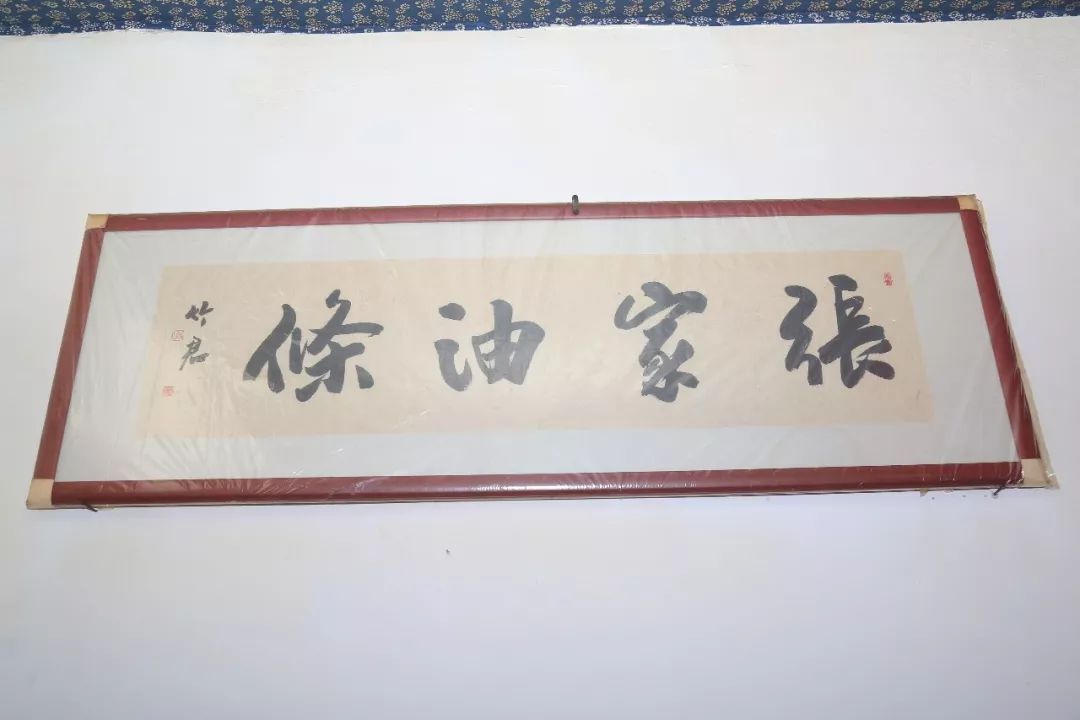 張家油條
竹君